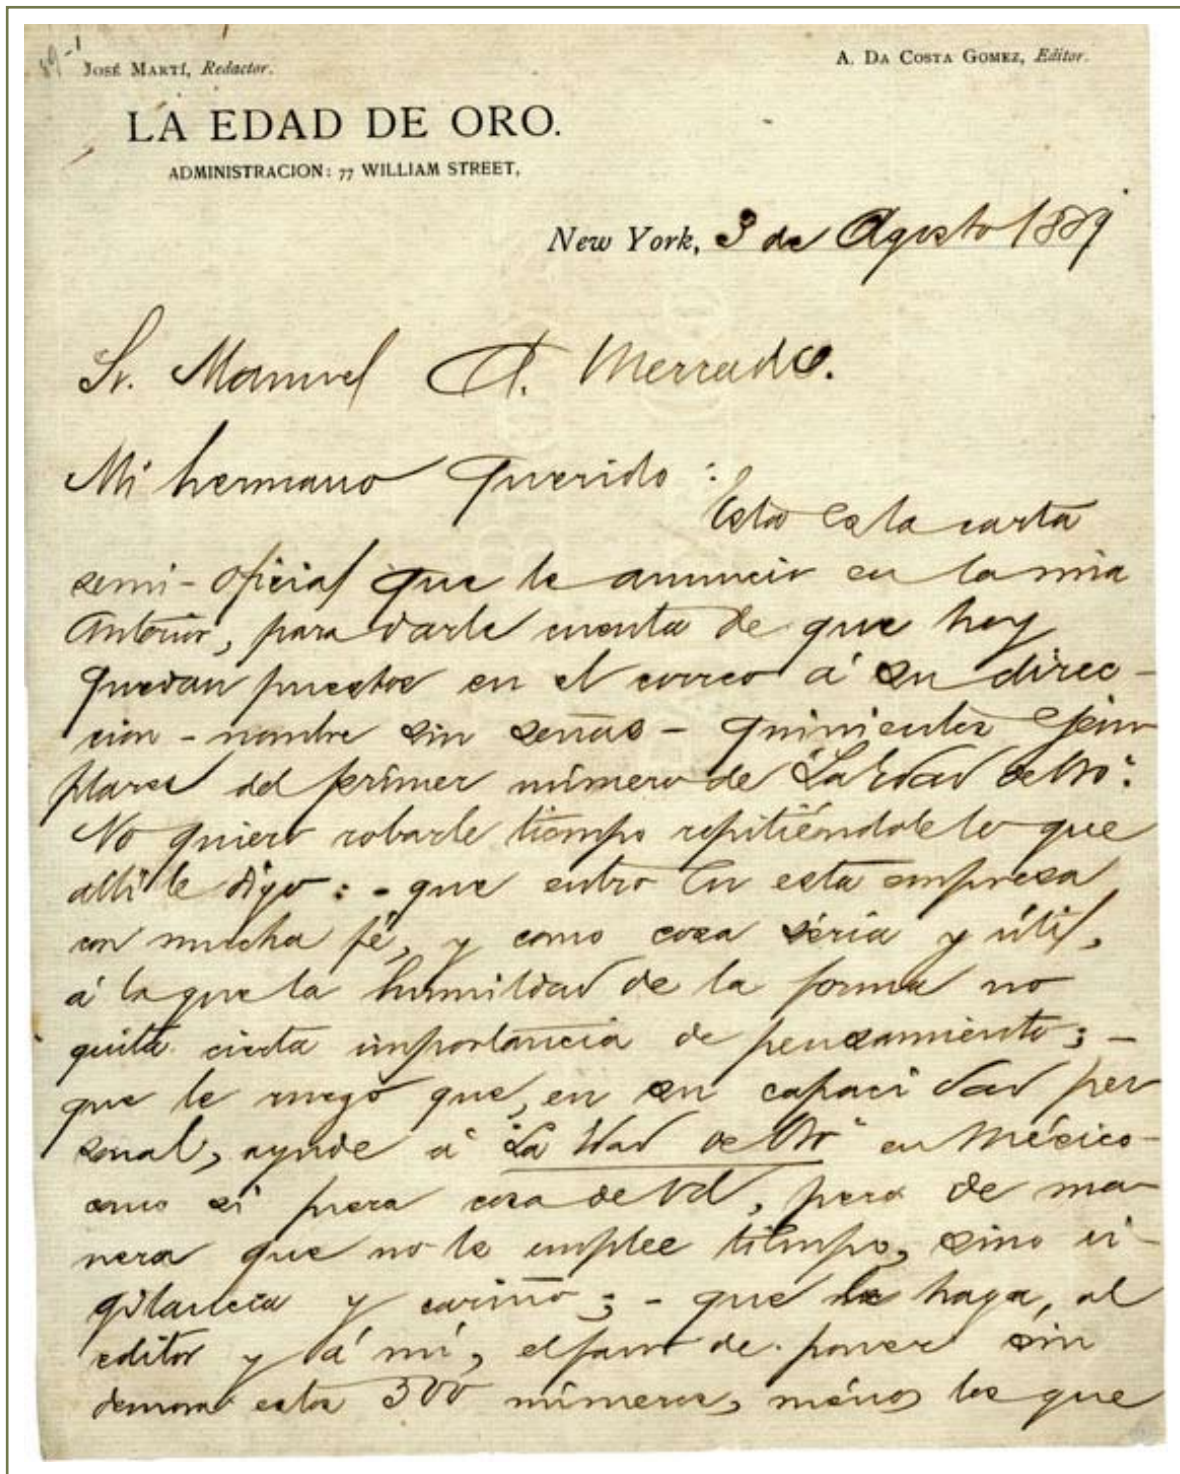 89-1
JOSÉ MARTÍ, Redactor.
A. DA COSTA GOMEZ, Editor.
LA EDAD DE ORO.
ADMINISTRACION: 77 WILLIAM STREET,
New York, 3 de Agosto 1889
Sr. Manuel A. Mercado.
Mi hermano querido:
Esta es la carta
semi-oficial que le anuncio en la mia
anterior, para darle cuenta de que hoy
quedan puestos en el correo á su direc-
cion - nombre sin señas - quinientos ejem
plares del primer número de "La Edad de Oro".
No quiero robarle tiempo repitiéndole lo que
alli le digo: - que entro en esta empresa
con mucha fé, y como cosa séria y útil,
á la que la humildad de la forma no
quita cierta importancia de pensamiento; -
que le ruego que, en su capacidad per
sonal, ayude á "La Edad de Oro" en México
como si fuera cosa de Vd, pero de ma-
nera que no le emplee tiempo, sino vi-
gilancia y cariño; - que haga, al
editor y á mí, el favor de poner sin
demora estos 500 números, ménos los que